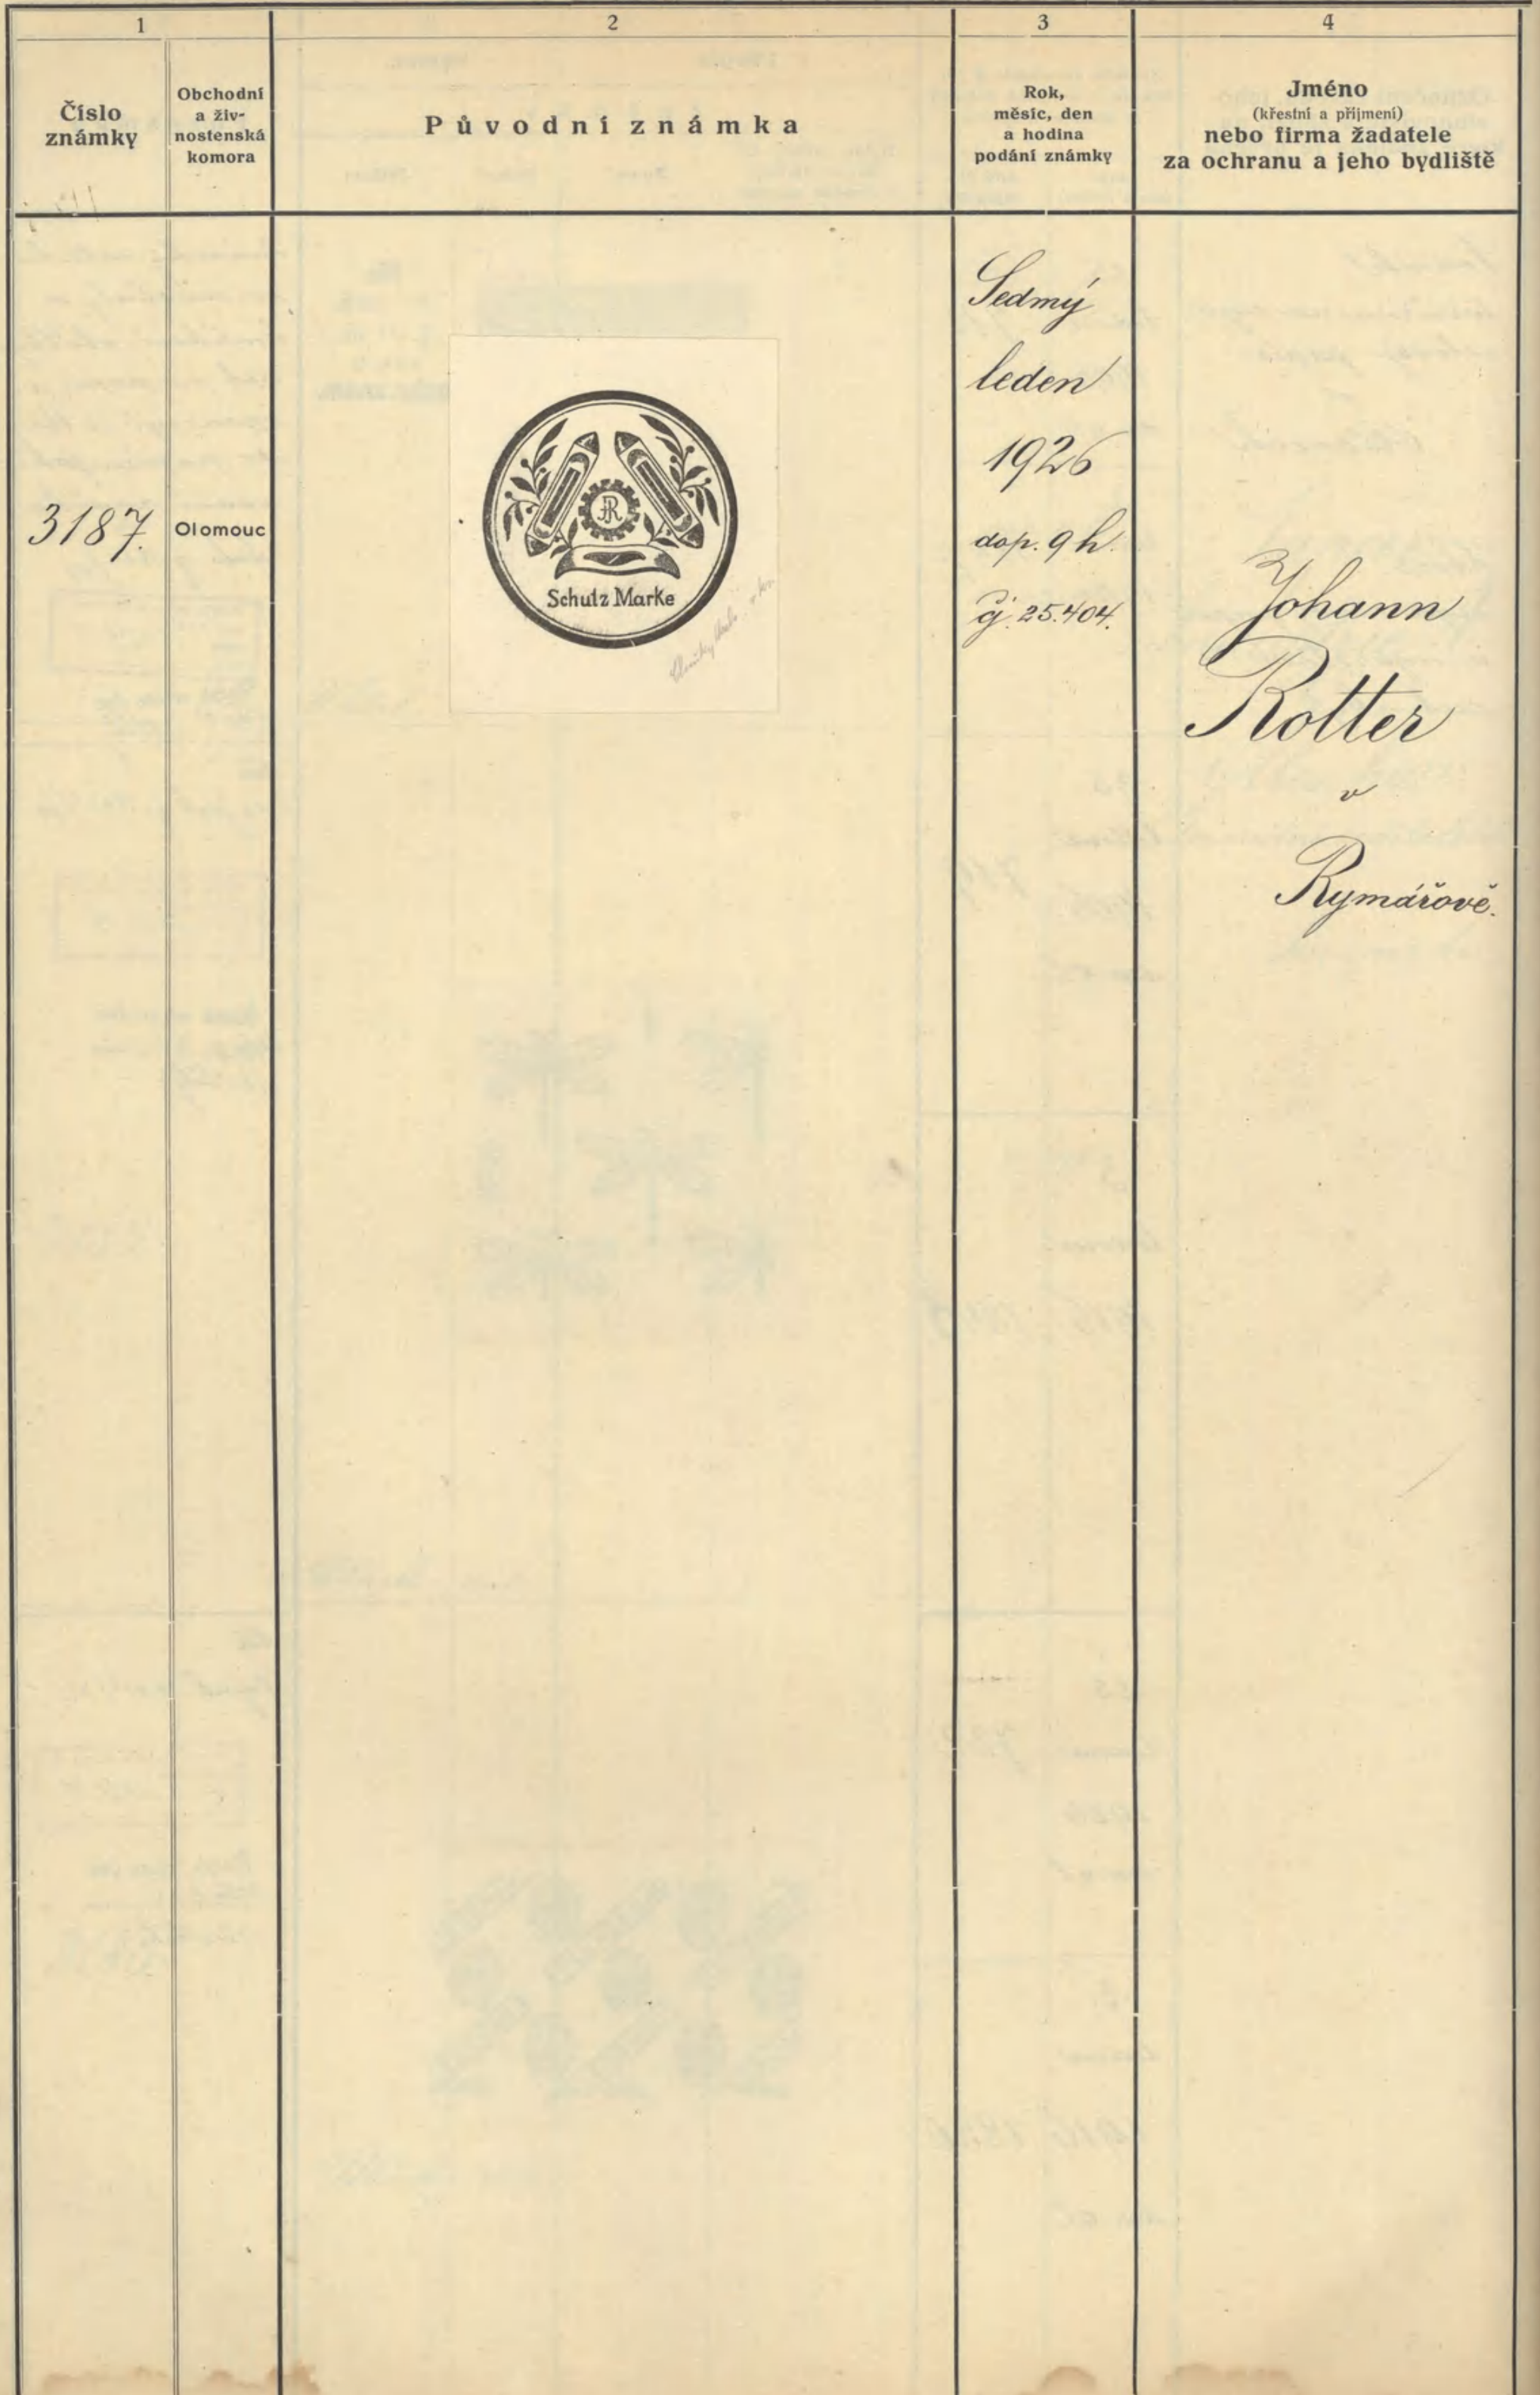 1
2
3
4
Číslo
známky
Obchodní
a živ-
nostenská
komora
Původní známka
Rok,
měsíc, den
a hodina
podání známky
Jméno
(křestní a příjmení)
nebo firma žadatele
za ochranu a jeho bydliště
3187.
Olomouc
JR
Schutz Marke
Sedmý
leden
1926
dop. 9 h.
čj. 25.404.
Johann
Rotter
v
Rymářově.